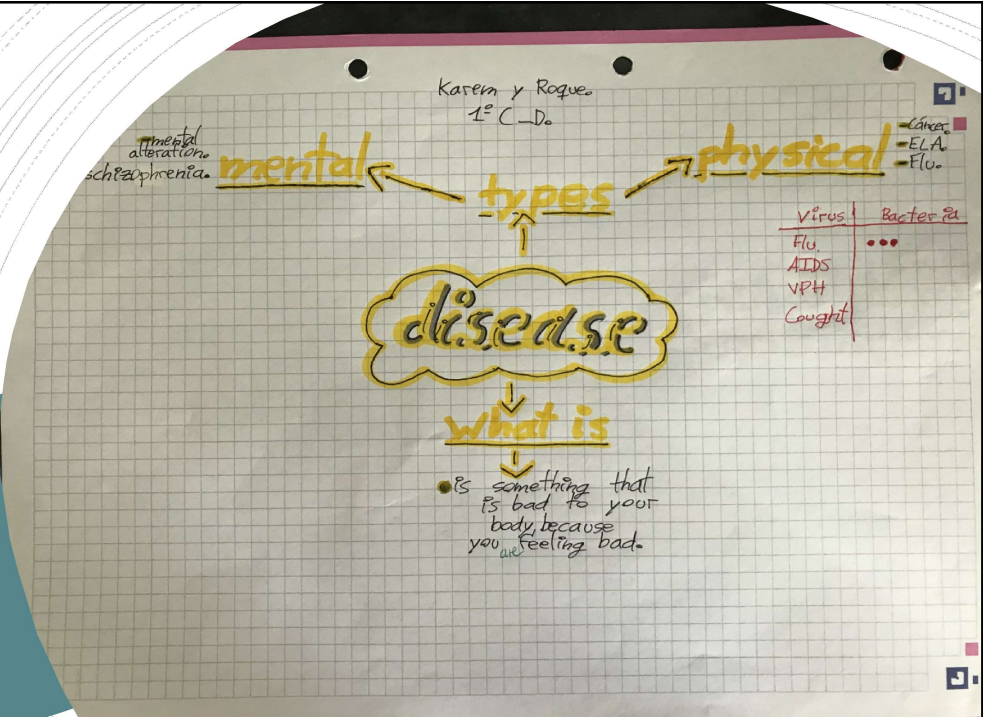 Karem y Roque.
1º C_D.
-mental
alteration.
schizophrenia.
mental
types
physical
-Cáncer.
-ELA.
-Flu.
Virus Bacteria
Flu. •••
AIDS
VPH
Cought
disease
What is
•is something that
is bad to your
body, because
you are feeling bad.